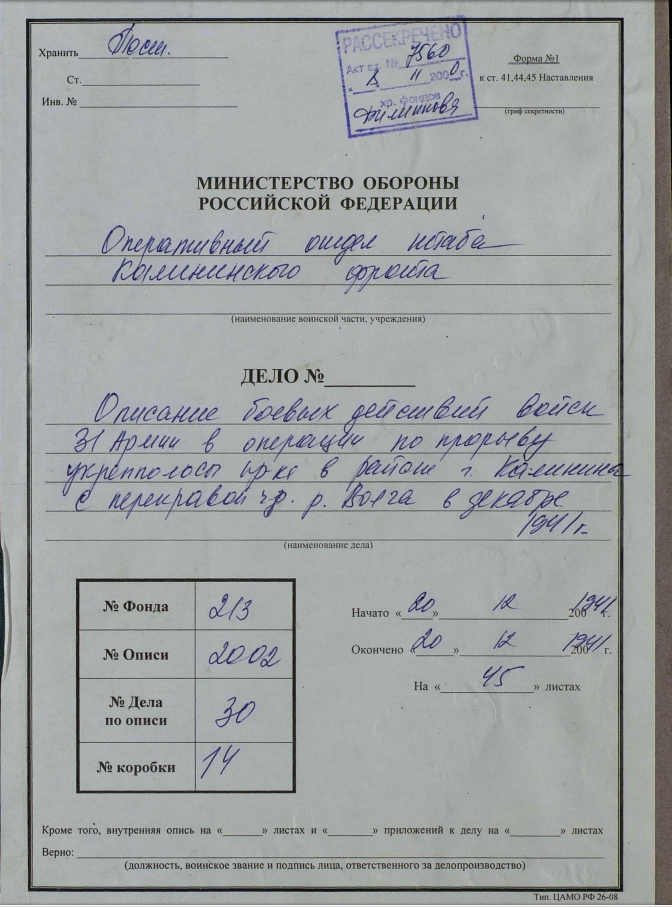 Хранить Пост.
Ст.
Инв. №
РАССЕКРЕЧЕНО
Акт вх. № 7560
« 8 11 2000 г.
хр. фондов
Форма №1
к ст. 41,44,45 Наставления
(гриф секретности)
МИНИСТЕРСТВО ОБОРОНЫ
РОССИЙСКОЙ ФЕДЕРАЦИИ
Оперативный отдел штаба
Калининского фронта
(наименование воинской части, учреждения)
ДЕЛО №
Описание боевых действий войск
31 Армии в операции по прорыву
укрепполосы пр-ка в районе г. Калинина
с переправой ч.з. р. Волга в декабре
1941 г.
(наименование дела)
№ Фонда 213
№ Описи 2002
№ Дела по описи 30
№ коробки 14
Начато «20» 12 1941 г.
Окончено «20» 12 1941 г.
На « 45 » листах
Кроме того, внутренняя опись на «______» листах и «______» приложений к делу на «______» листах
Верно:
(должность, воинское звание и подпись лица, ответственного за делопроизводство)
Тип. ЦАМО РФ 26-08